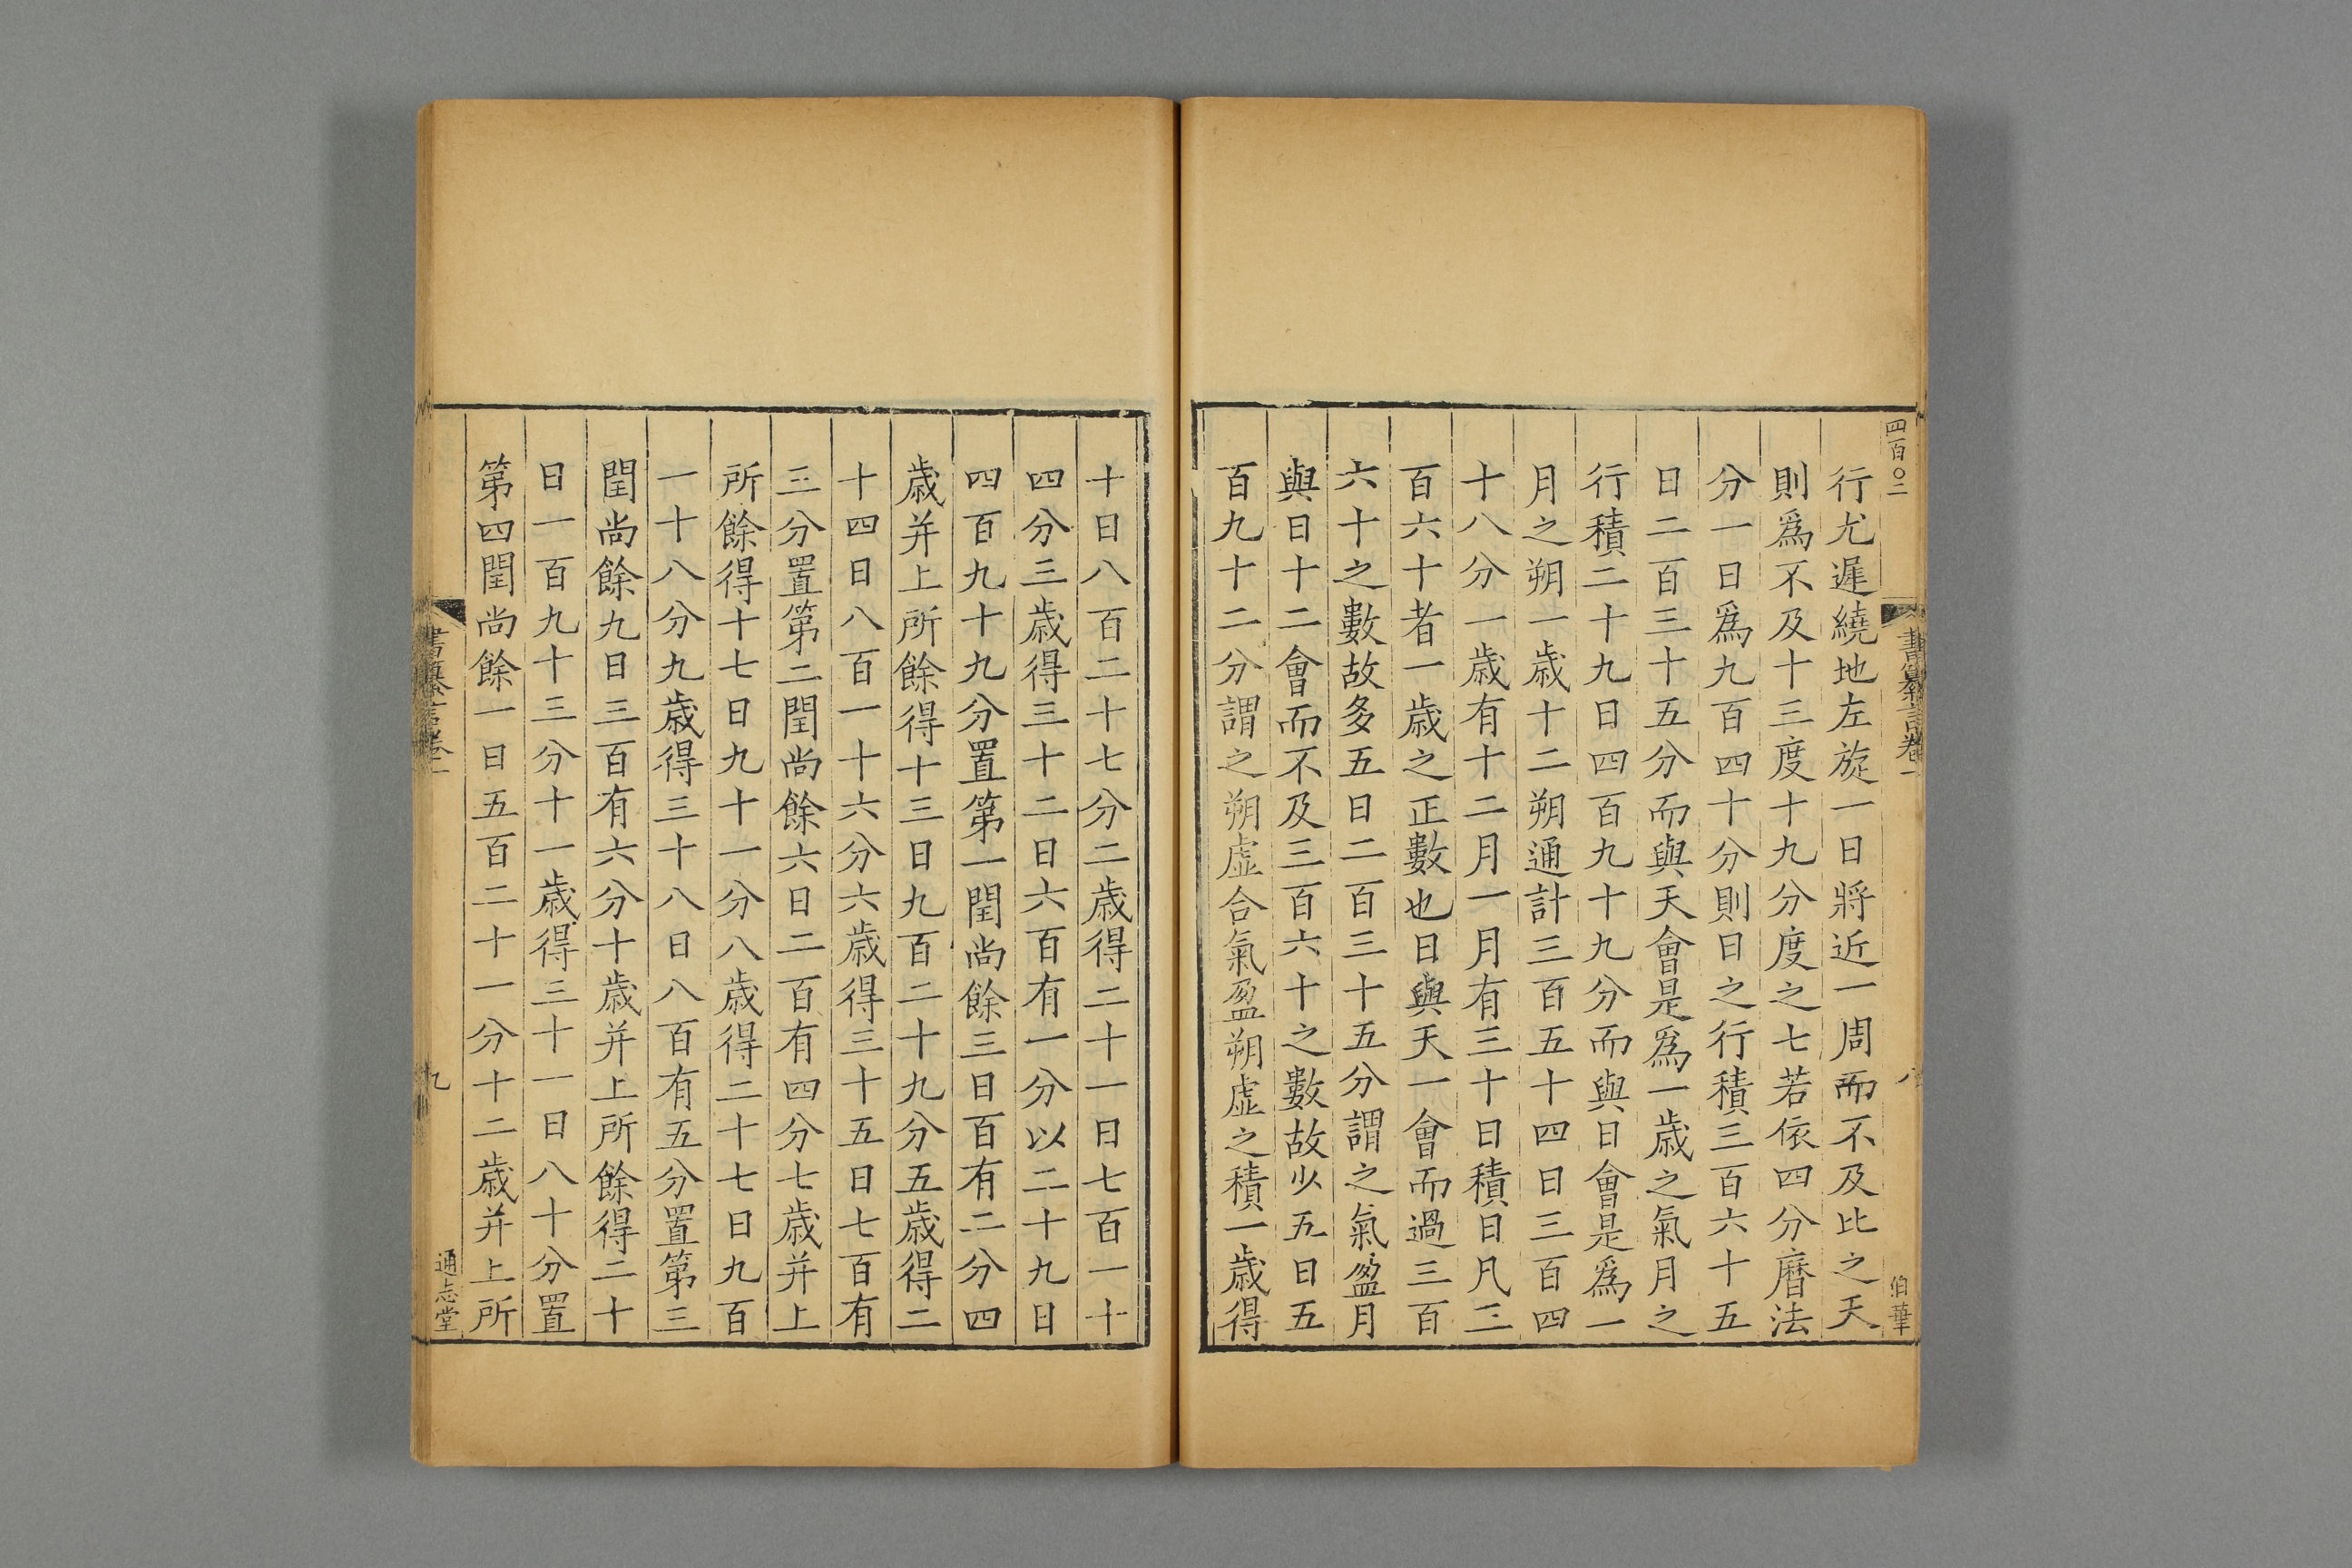 四百〇二
書纂言卷一
八
伯華
行尤遲繞地左旋一日將近一周而不及比之天
則爲不及十三度十九分度之七若依四分曆法
分一日爲九百四十分則日之行積三百六十五
日二百三十五分而與天會是爲一歲之氣月之
行積二十九日四百九十九分而與日會是爲一
月之朔一歲十二朔通計三百五十四日三百四
十八分一歲有十二月一月有三十日積日凡三
百六十者一歲之正數也日與天一會而過三百
六十之數故多五日二百三十五分謂之氣盈月
與日十二會而不及三百六十之數故少五日五
百九十二分謂之朔虛合氣盈朔虛之積一歲得
十日八百二十七分二歲得二十一日七百一十
四分三歲得三十二日六百有一分以二十九日
四百九十九分置第一閏尚餘三日百有二分四
歲并上所餘得十三日九百二十九分五歲得二
十四日八百一十六分六歲得三十五日七百有
三分置第二閏尚餘六日二百有四分七歲并上
所餘得十七日九十一分八歲得二十七日九百
一十八分九歲得三十八日八百有五分置第三
閏尚餘九日三百有六分十歲并上所餘得二十
日一百九十三分十一歲得三十一日八十分置
第四閏尚餘一日五百二十一分十二歲并上所
書纂言卷一
九
通志堂